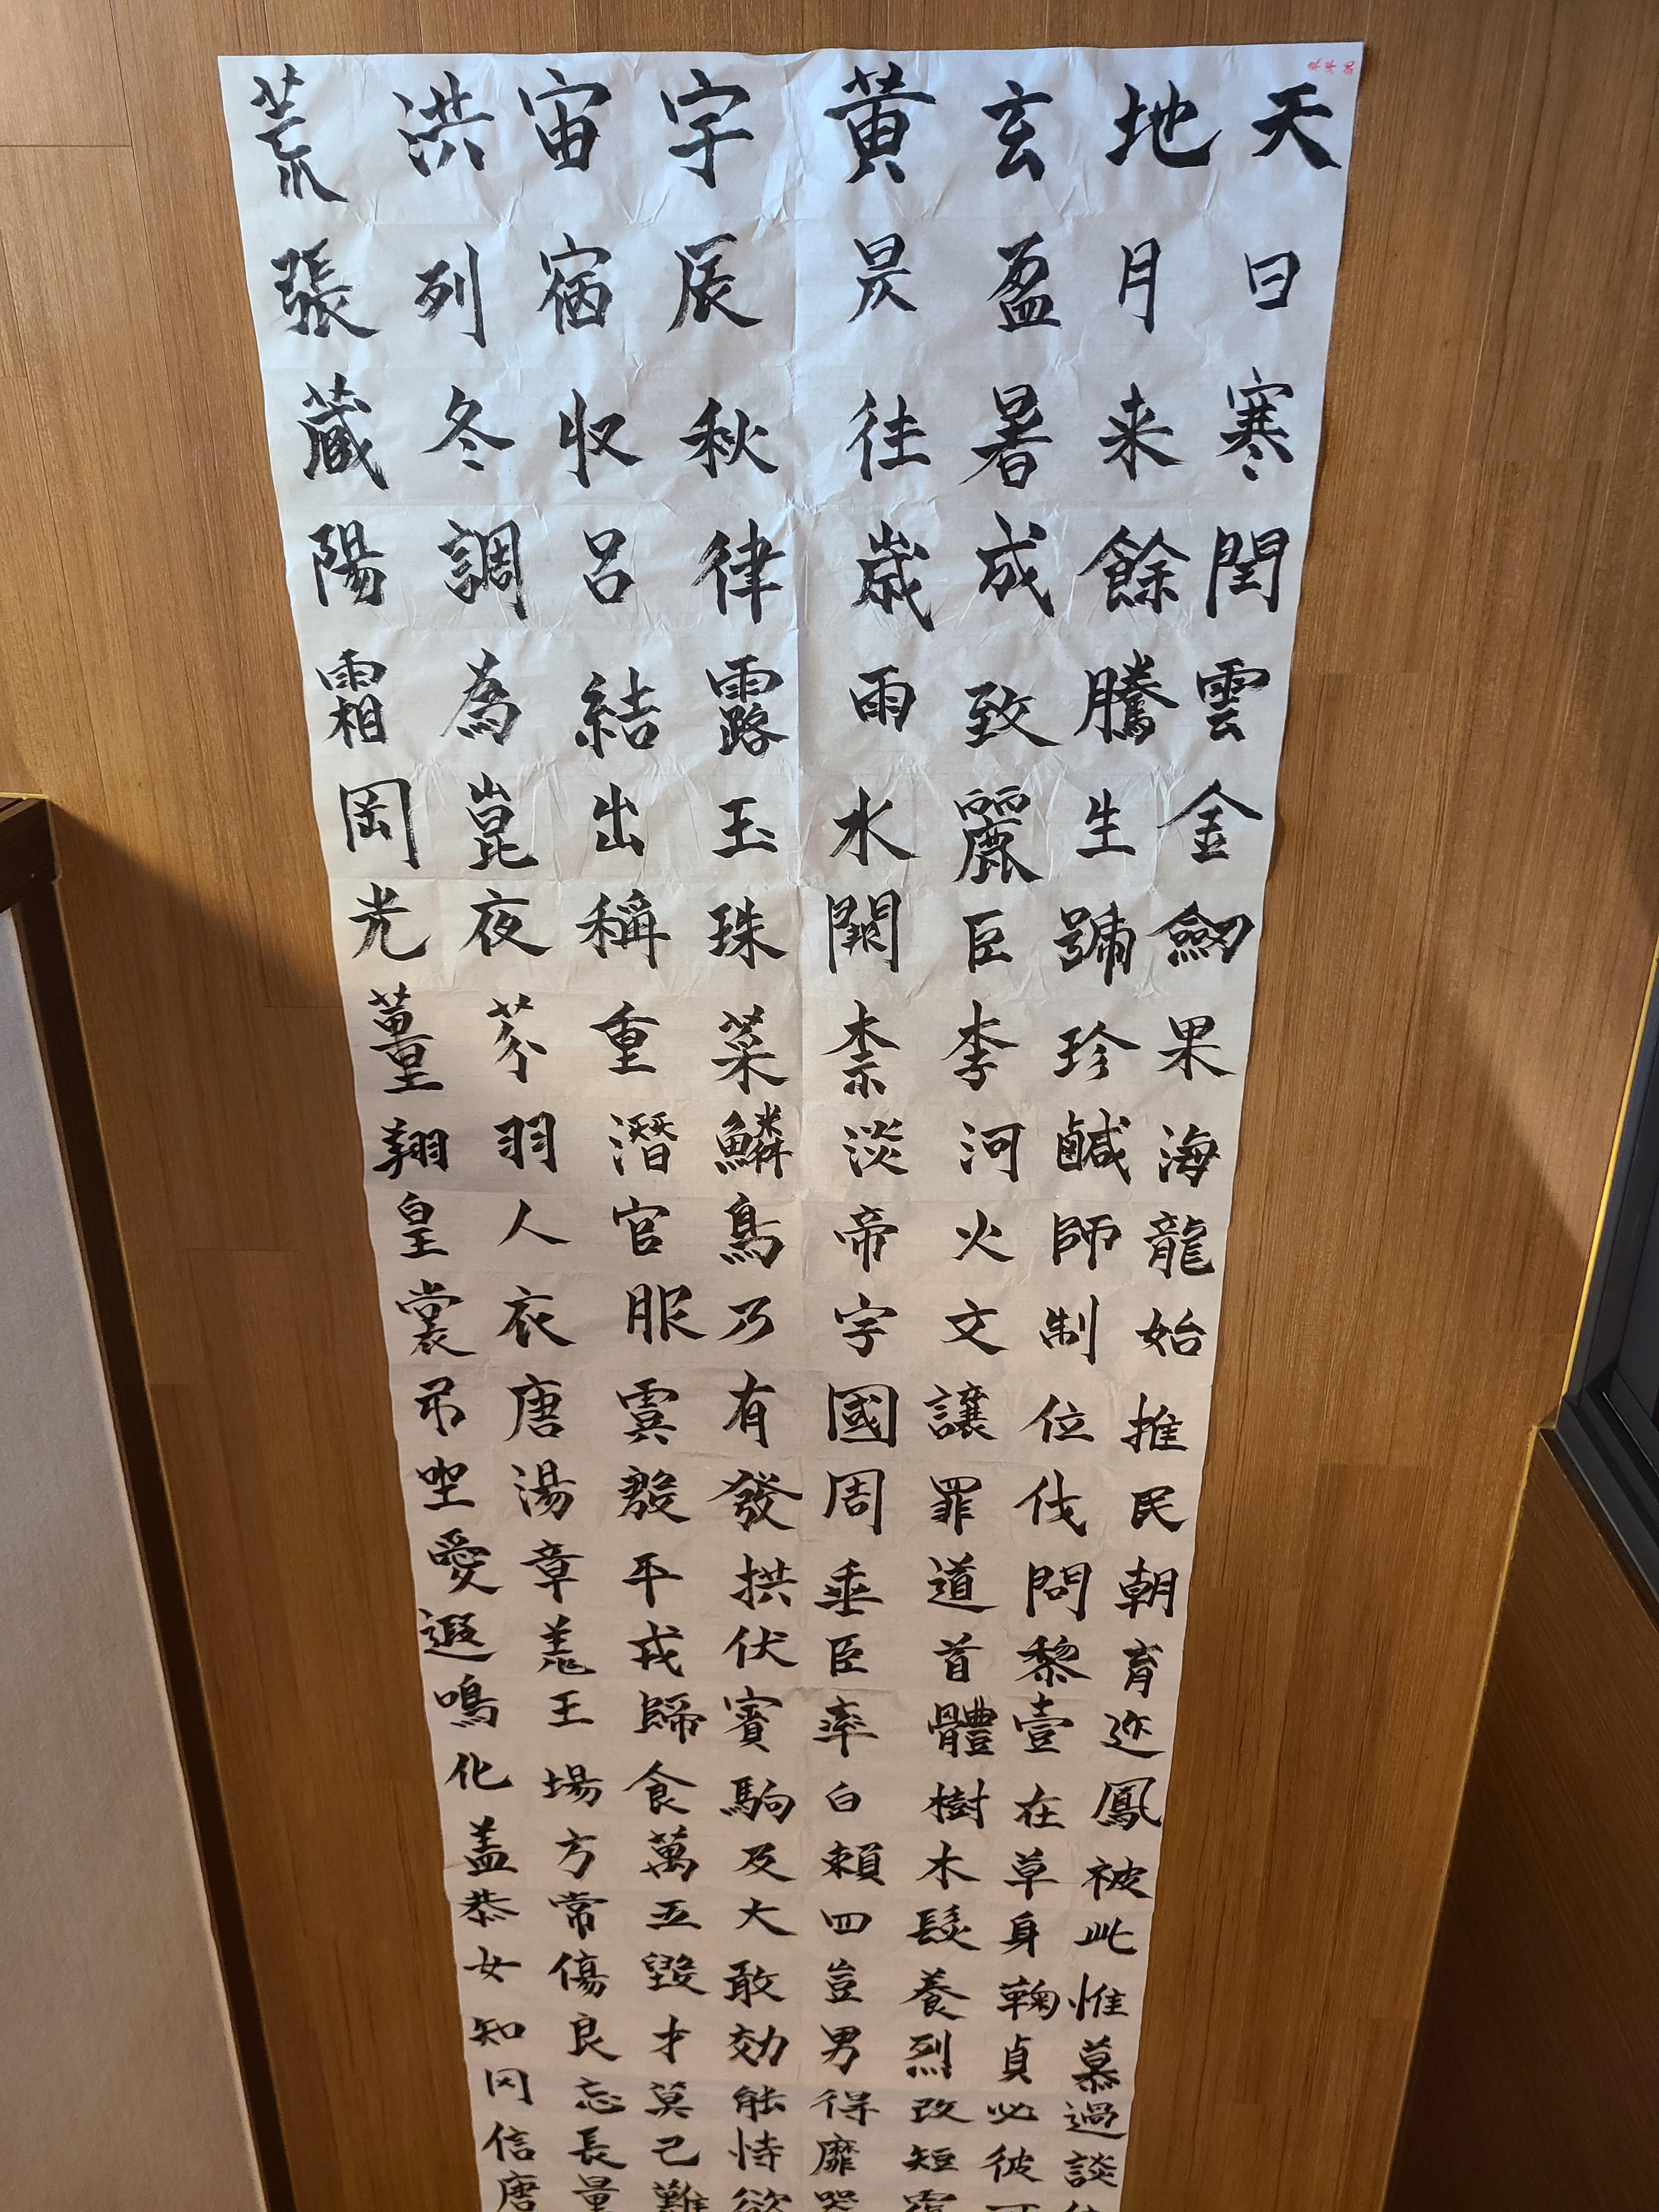 天地玄黄宇宙洪荒
日月盈昃辰宿列張
寒来暑往秋収冬蔵
閏餘成歳律呂調陽
雲騰致雨露結為霜
金生麗水玉出崑岡
劒號臣闕珠稱夜光
果珍李柰菜重芥薑
海鹹河淡鱗潛羽翔
龍師火帝鳥官人皇
始制文字乃服衣裳
推位讓國有虞唐弔
民伐罪周發殷湯坐
朝問道垂拱平章愛
育黎首臣伏戎羌遐
迩壹體率賓歸王鳴
鳳在樹白駒食場化
被草木賴及萬方盖
此身髮四大五常恭
惟鞠養豈敢毀傷女
慕貞烈男効才良知
過必改得能莫忘罔
談彼短靡恃己長信
欲難量